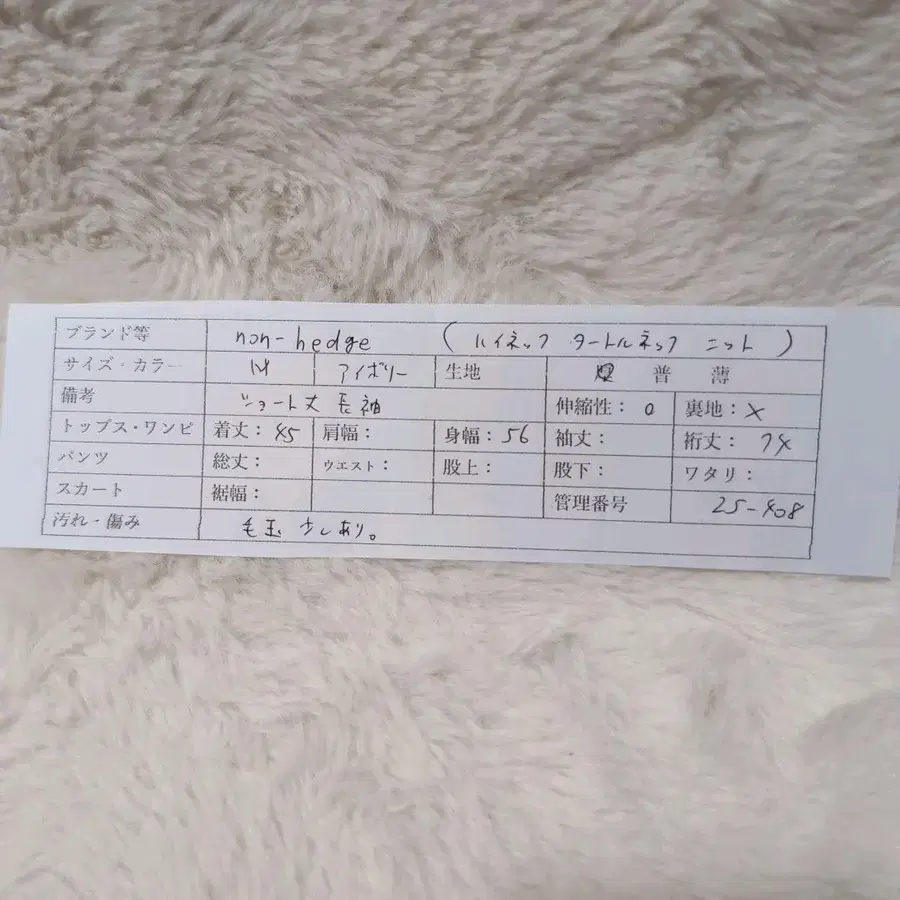 ブランド等 non-hedge (ハイネック タートルネック ニット)
サイズ・カラー M アイボリー 生地 厚 普 薄
備考 ショート丈 長袖 伸縮性：○ 裏地：×
トップス・ワンピ 着丈：45 肩幅： 身幅：56 袖丈： 裄丈：74
パンツ 総丈： ウエスト： 股上： 股下： ワタリ：
スカート 裾幅： 管理番号 25-408
汚れ・傷み 毛玉 少しあり。